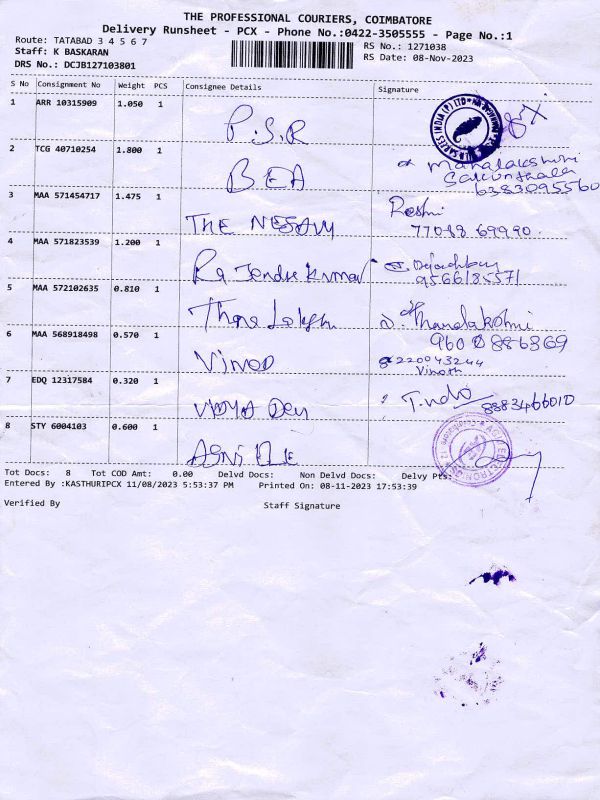 THE PROFESSIONAL COURIERS, COIMBATORE
Delivery Runsheet - PCX - Phone No.:0422-3505555 - Page No.:1
Route: TATABAD 3 4 5 6 7
Staff: K BASKARAN
DRS No.: DCJB127103801
RS No.: 1271038
RS Date: 08-Nov-2023
S No Consignment No Weight PCS Consignee Details Signature
1 ARR 10315909 1.050 1
P.S.R
2 TCG 40710254 1.800 1
BEA
Mahalakshmi
Sakunthala
6383095560
3 MAA 571454717 1.475 1
THE NESAM
Reshmi
77088 69990
4 MAA 571823539 1.200 1
Rajendra Kumar
9566185571
5 MAA 572102635 0.810 1
Thana Lakshmi
D. Thanalakshmi
9600886869
6 MAA 568918498 0.570 1
VINOD
8220043244
Vinoth
7 EDQ 12317584 0.320 1
VIDYA Devi
T. Indo
8883466010
8 STY 6004103 0.600 1
Tot Docs: 8 Tot COD Amt: 0.00 Delvd Docs: Non Delvd Docs: Delvy Pts:
Entered By :KASTHURIPCX 11/08/2023 5:53:37 PM Printed On: 08-11-2023 17:53:39
Verified By Staff Signature